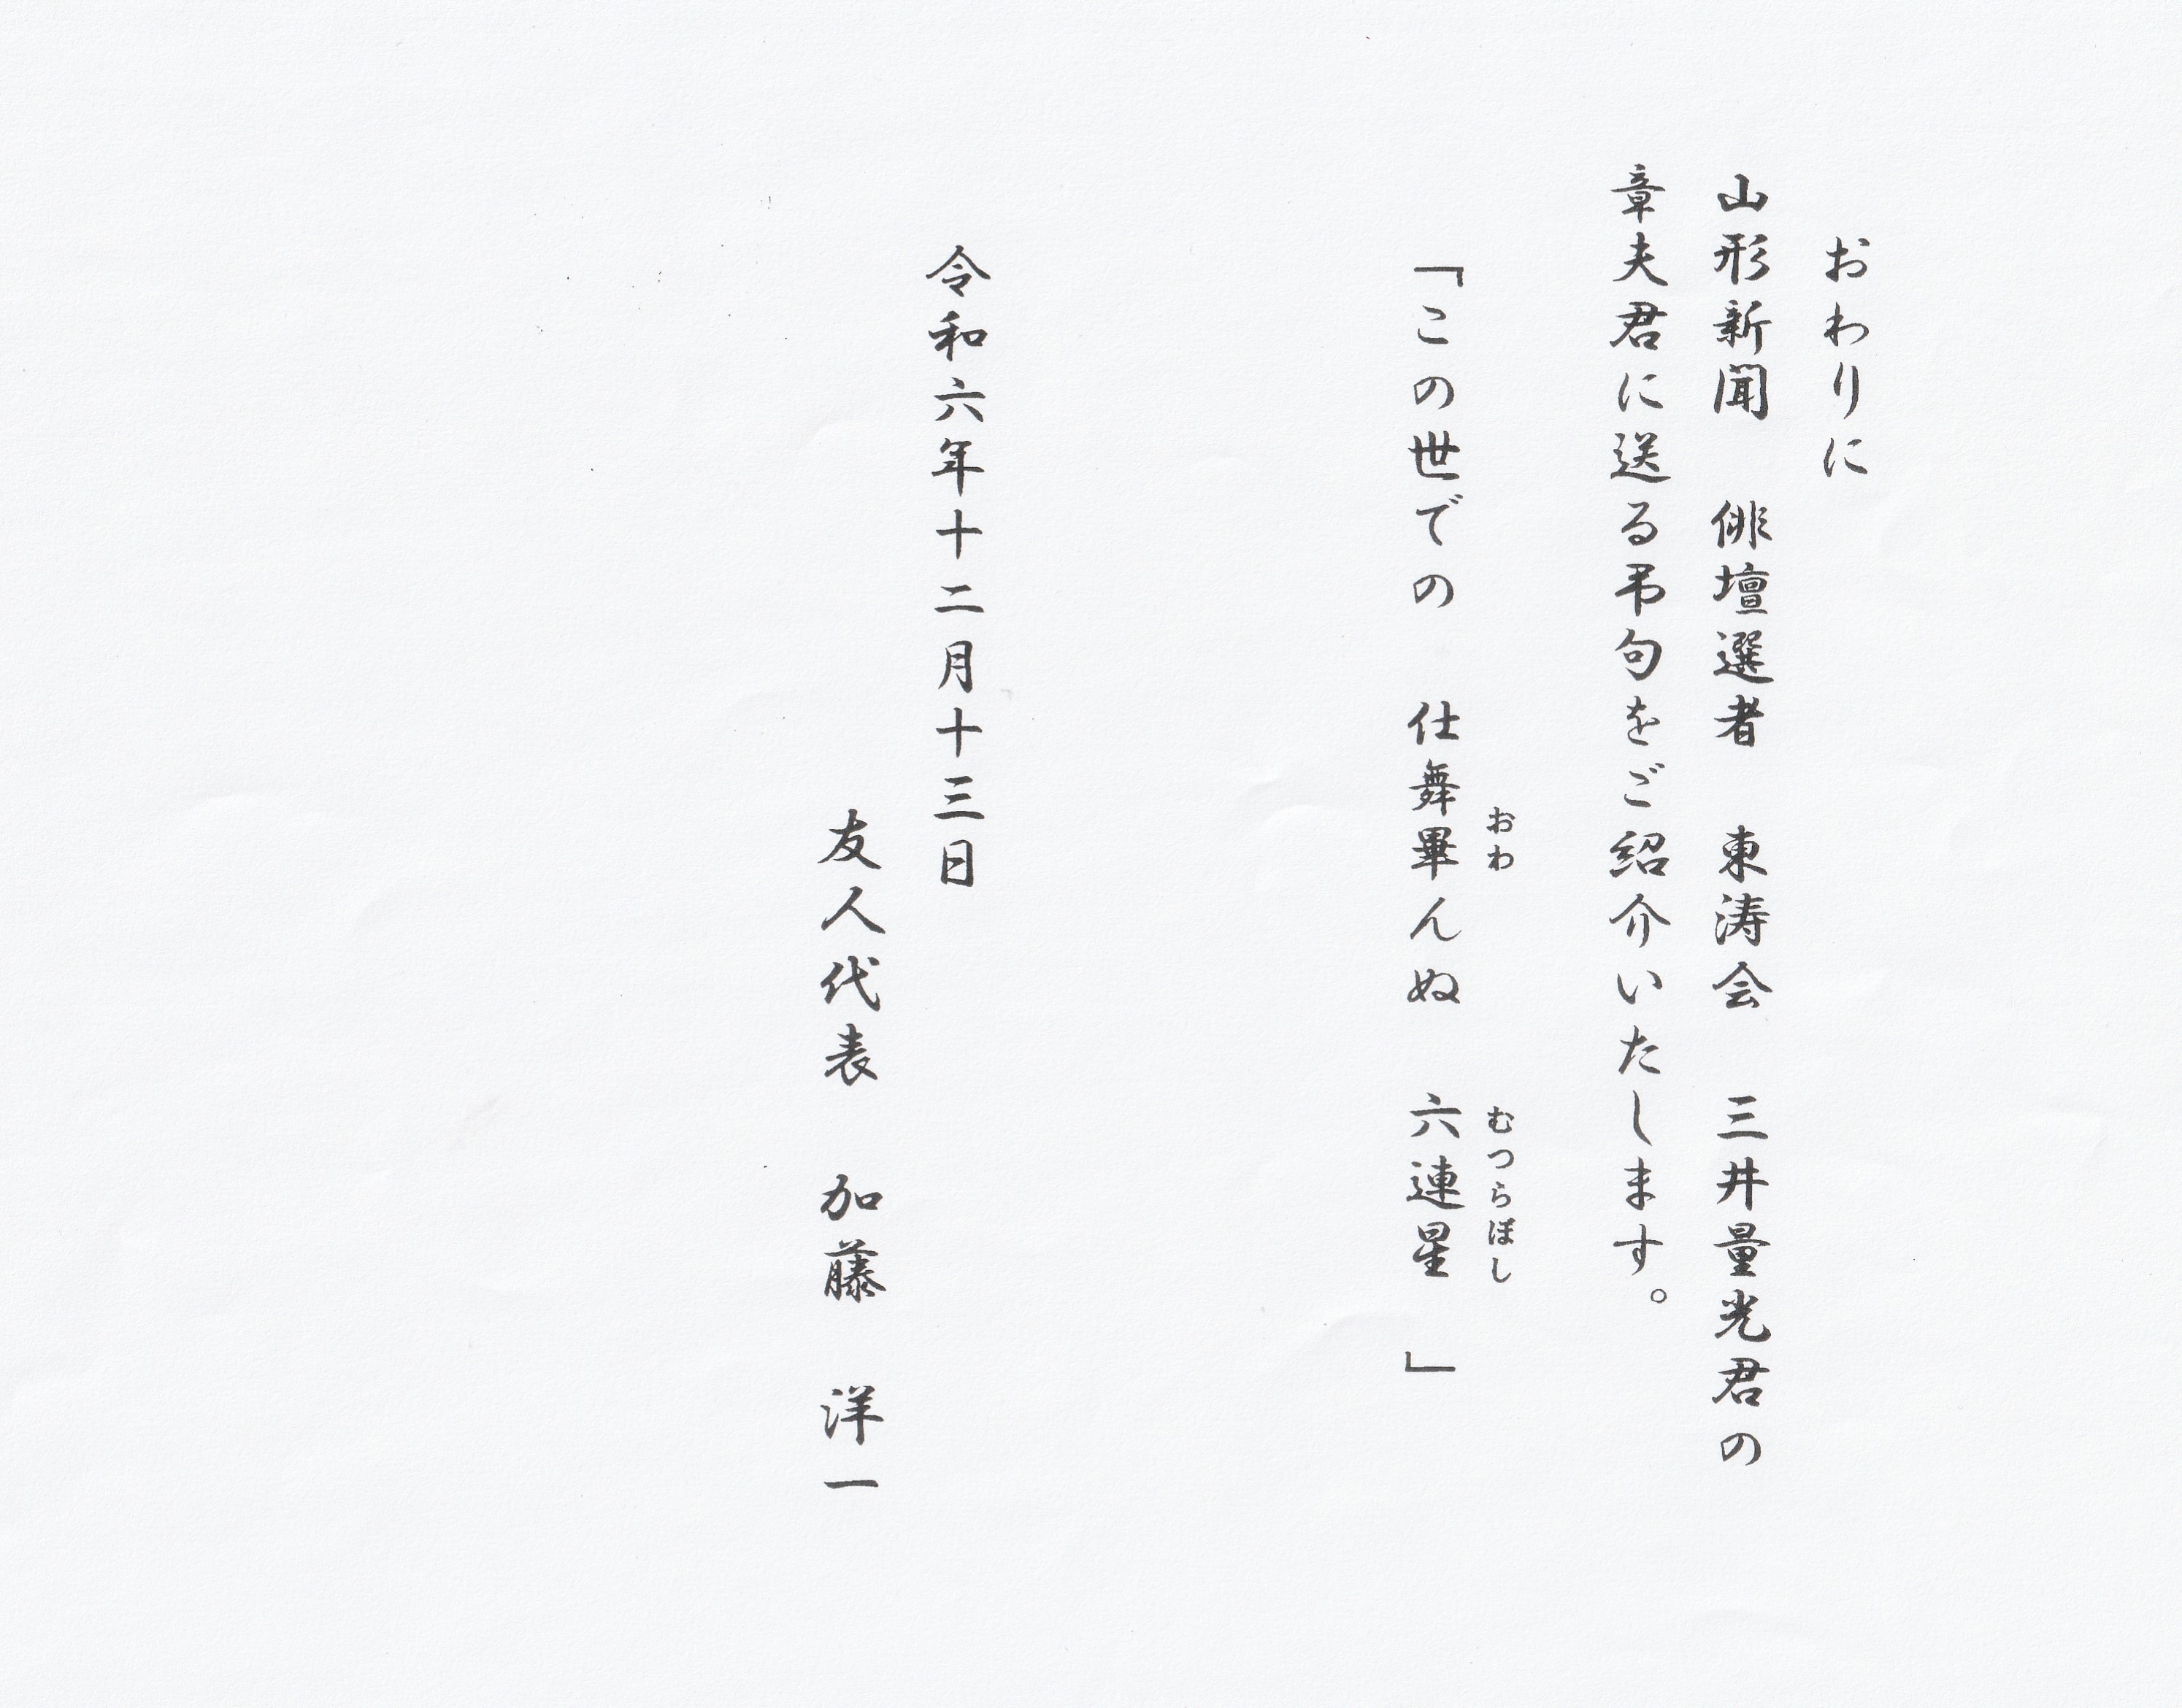 おわりに
山形新聞　俳壇選者　東涛会　三井量光君の
章夫君に送る弔句をご紹介いたします。
「この世での　仕舞畢んぬ　六連星　」
おわ
むつらぼし
令和六年十二月十三日
友人代表　加藤　洋一